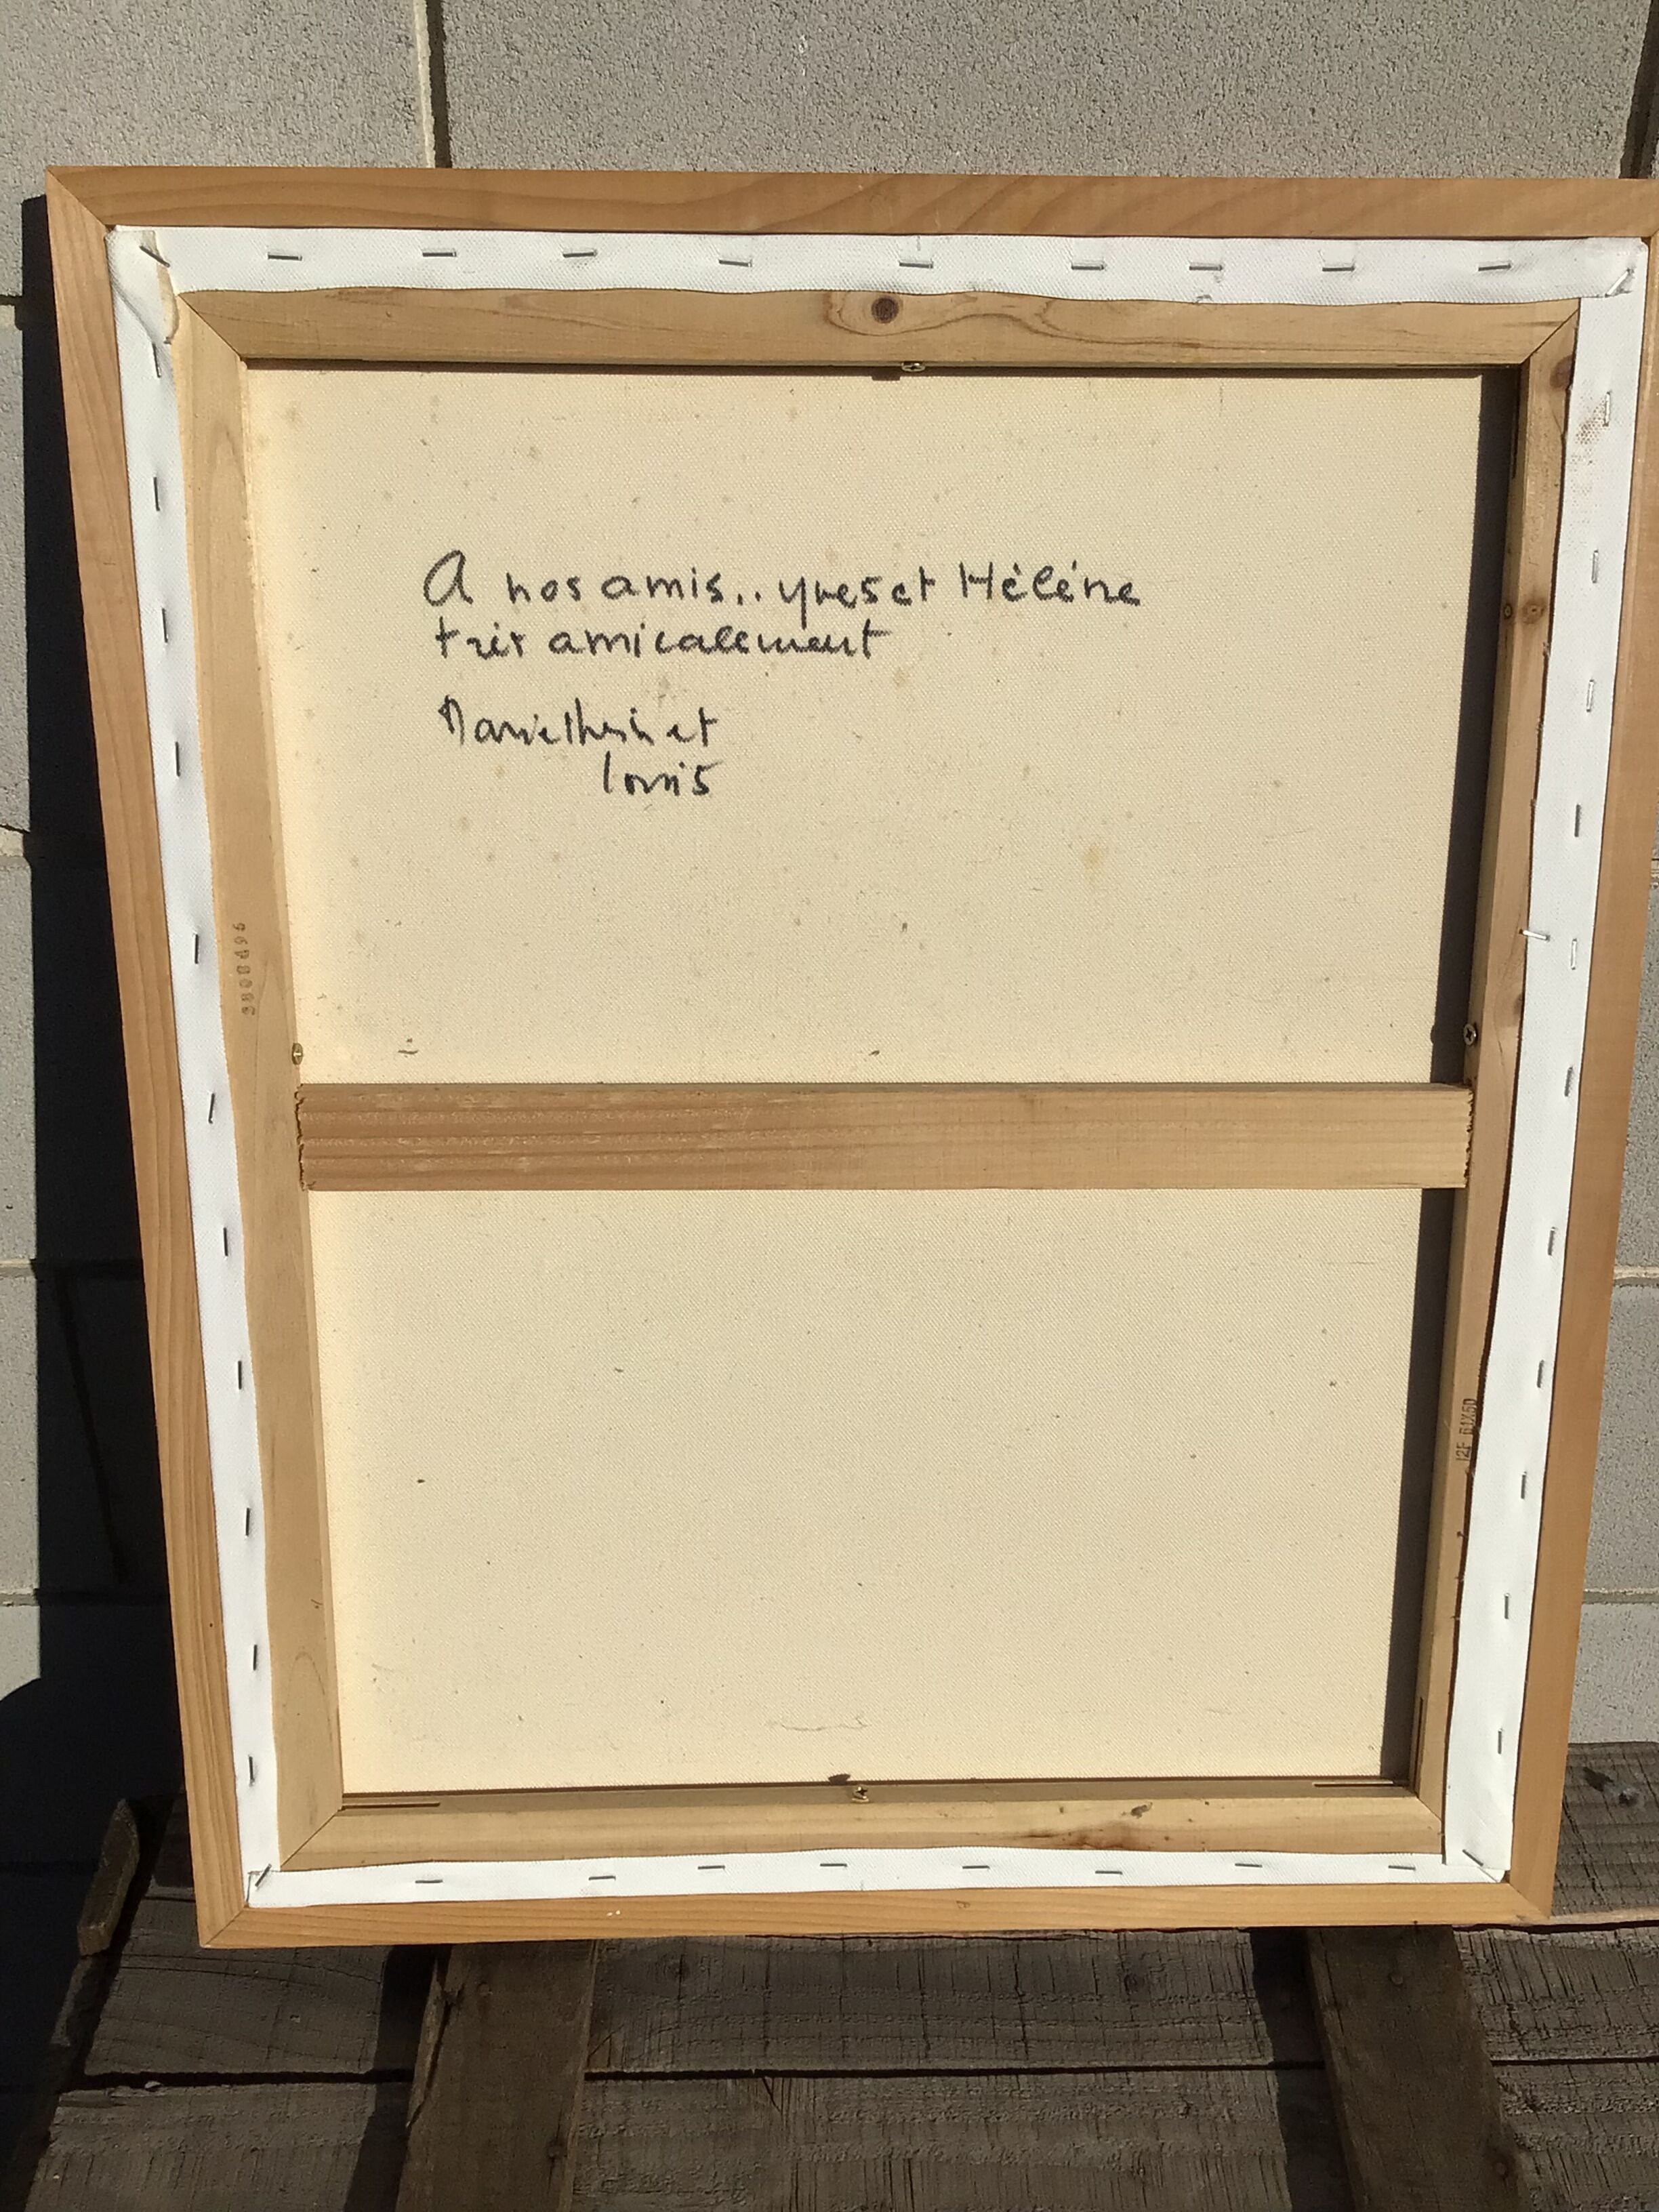 A nos amis.. yves et Hélène
très amicalement
et
Louis
12F 61X50